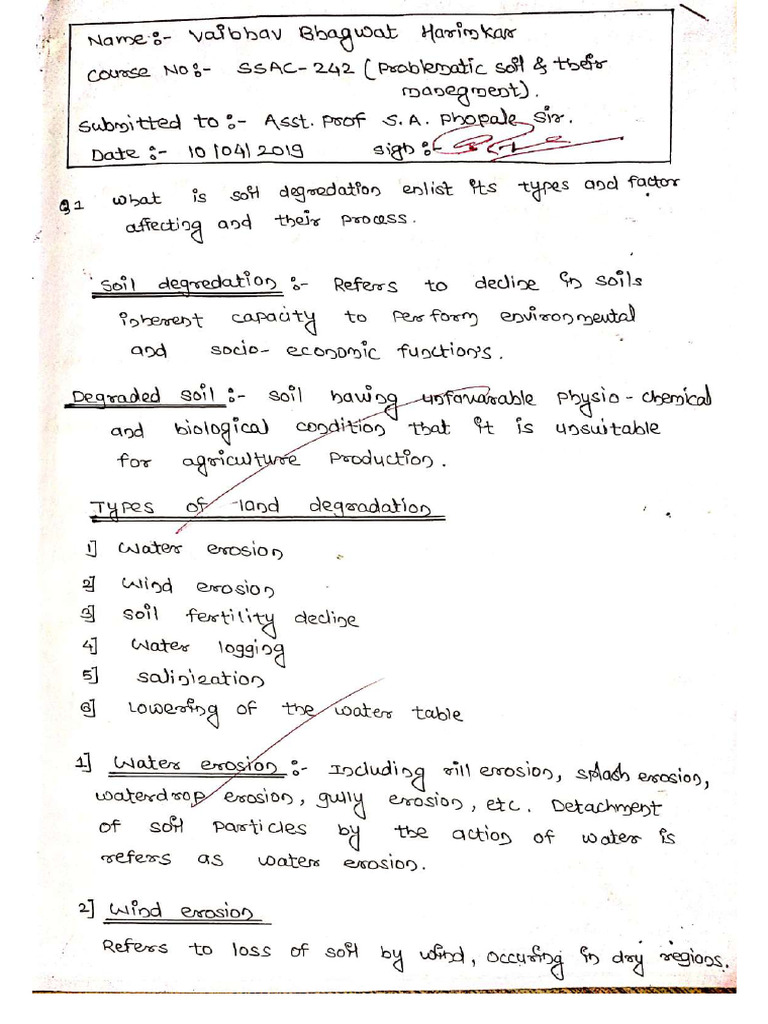 Name:- Vaibhav Bhagwat Harinkar
Course No:- SSAC-242 (Problematic soil & their
manegment).
Submitted to:- Asst. Prof S.A. Phopale Sir.
Date:- 10/04/2019 Sign:-
Q1 What is soil degredation enlist its types and factor
affecting and their process.
Soil degredation:- Refers to decline in soils
inherent capacity to perform environmental
and socio-economic function's.
Degraded soil:- soil having unfavarable physio-chemical
and biological condition that it is unsuitable
for agriculture production.
Types of land degradation
1] Water erosion
2] Wind erosion
3] Soil fertility decline
4] Water logging
5] Salinization
6] Lowering of the water table
1] Water erosion:- Including rill erosion, splash erosion,
waterdrop erosion, gully erosion, etc. Detachment
of soil particles by the action of water is
refers as water erosion.
2] Wind erosion
Refers to loss of soil by wind, occuring in dry regions.